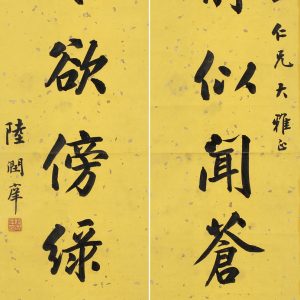 仁兄大雅正
似聞蒼
欲傍綠
陸潤庠